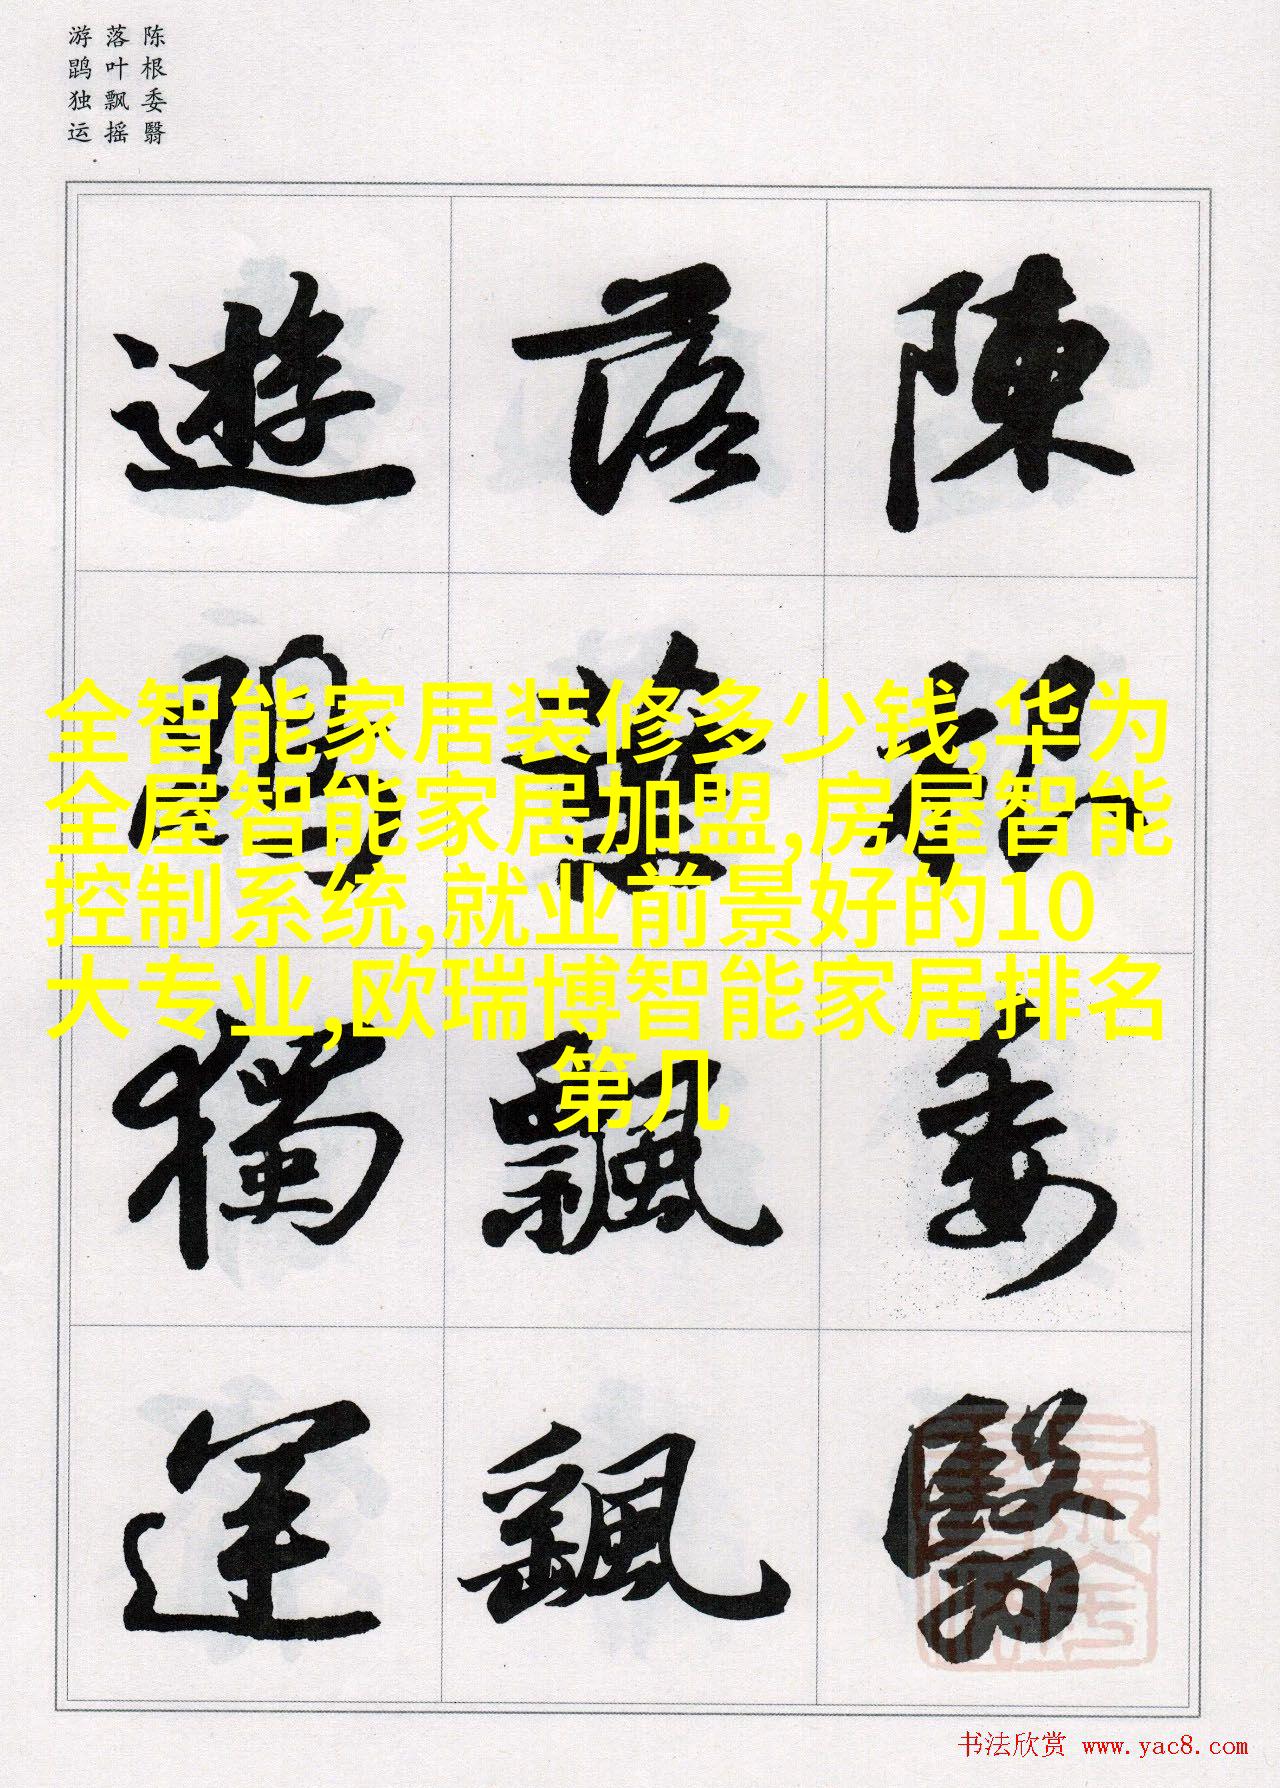 陈根委翳
落叶飘摇
游鹍独运
陳根委翳
落葉飄颻
遊鵾獨運
全智能家居装修多少钱,华为
全屋智能家居加盟,房屋智能
控制系统,就业前景好的10
大专业,欧瑞博智能家居排名
第几
书法欣赏 www.yac8.com